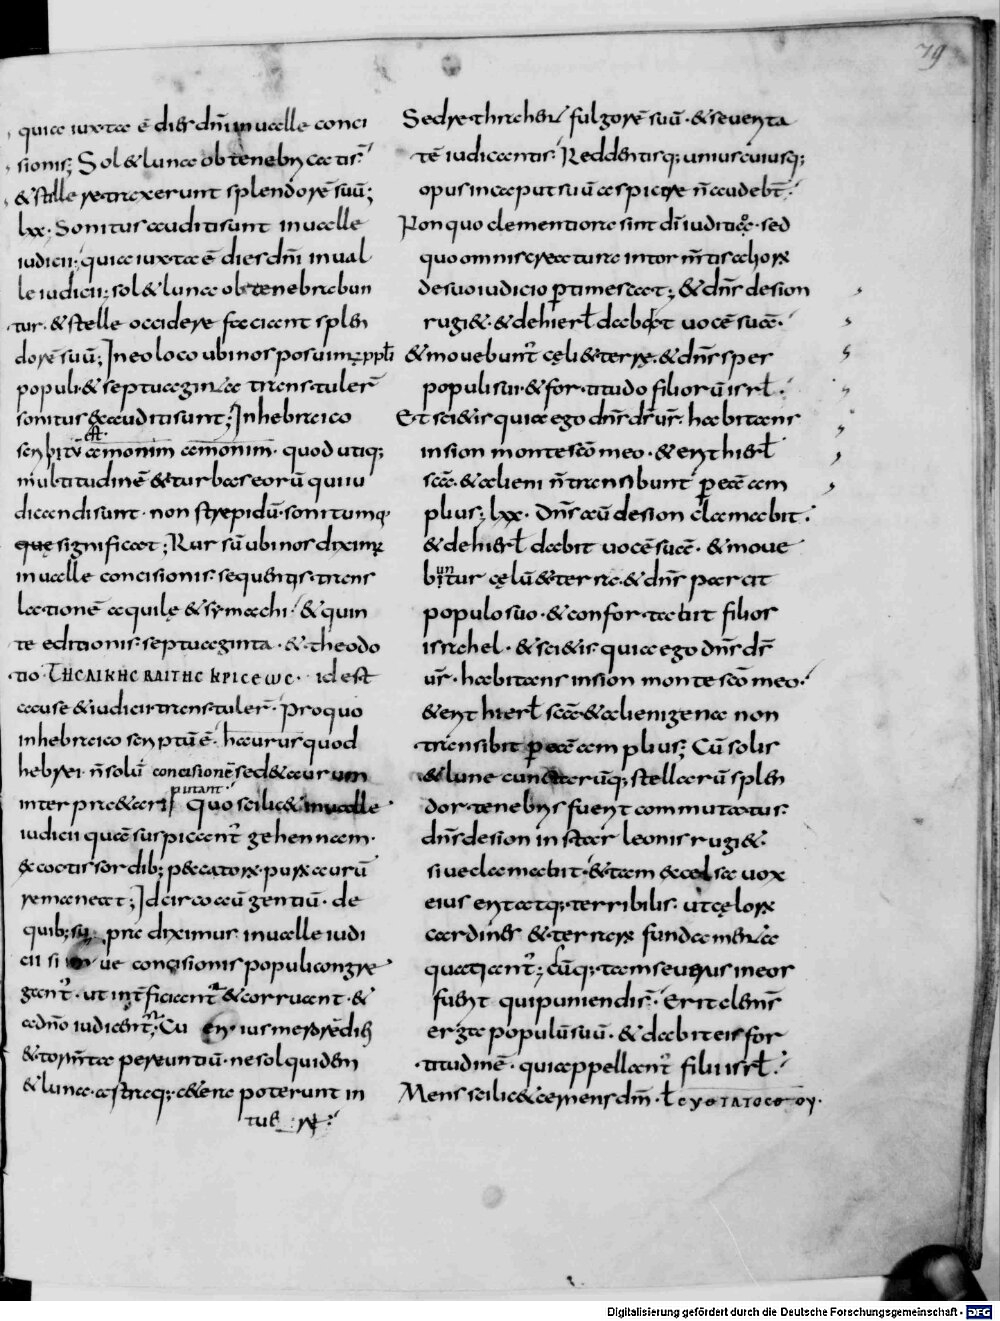 79
quia iuxta ē dies dn̄i in ualle conci
sionis; Sol & luna obtenebrati s̄
& stelle retraxerunt splendorē suū;
lxx. Sonitus auditi sunt in ualle
iudicii; quia iuxta ē dies dn̄i in ual
le iudicii; sol & luna obtenebrabun
tur. & stelle occidere faciant splen
dorē suū; In eo loco ubi nos posuimꝰ ppl̄i
populi. & septuaginta transtuler̄
sonitus exauditi sunt; In hebraico
scribitū est amonim amonim. quod utiq;
multitudinē & turbas eorū qui iu
dicandi sunt. non strepidū. sonitumq;
que significat; Rursū ubi nos diximꝰ
in ualle concisionis. sequentis. trans
lationē aquilę & symachi. & quin
te editionis. septuaginta. & theodo
tio. ΤΗC ΔΙΚΗC ΚΑΙ ΤΗC ΚΡΙCΕωC. id est
cause & iudicii. transtuler̄. Pro quo
in hebraico scriptū ē. haurus quod
hebrei n̄ solū concisionē sed & aurum
interpraetari putant. quo scilic& in ualle
iudicii quā suspicant̄ gehennam.
excoctis sordib; peccatorꝝ. purꝝ aurū
remaneat; Idcirco cū gentiū. de
quib; supra diximus. in ualle iudi
cii siue concisionis populi congre
gant̄. ut int̄ficiant̄ & corruant. &
a dn̄o iudicent̄; Cū
& torm̄ta pereuntiū. ne sol quidem
& luna. astraq; caetera poterunt in
tueri
Sed retrahent fulgorē suū. & seuerita
tē iudicantis. Reddentisq; unius cuiusq;
opus in caput suū aspicere n̄ audebt̄.
Non quo clementiora sint dī iuditio. sed
quo omnis creatura in tormtis aliorꝝ
de suo iudicio ꝑtimescat; & dn̄s de sion
rugi&. & de hierl̄ dabit uocē suā.
& mouebunt̄ cęli & terrę. & dn̄s sper
populi sui. & fortitudo filiorū isrl̄.
Et sci&is quia ego dn̄s ds̄ ur̄. habitans
in sion monte scō meo. & erit hierl̄
scā. & alieni n̄ transibunt ꝑ eā am
plius; lxx. Dn̄s aū de sion clamabit.
& de hierl̄ dabit uocē suā. & moue
buntur cęlū & terra. & dn̄s parcit
populo suo. & confortabit filios
israhel. & sci&is quia ego dn̄s ds̄
ur̄. habitans in sion monte scō meo.
& erit hierl̄ scā & alienigena non
transibit ꝑ eā amplius; Cū solis
& lune cunctarūq; stellarū splen
dor tenebris fuerit commutatus.
dn̄s de sion instar leonis rugi&.
siue clamabit. & tam excelsa uox
eius erit atq; terribilis. ut cęlorꝝ
cardines & terrarꝝ fundamenta
quatiant̄; cūq; tam seuerus in eos
fuerit qui puniendi s̄. Erit clem̄s
erga populū suū. & dabit eis for
titudinē. qui appellant̄ filii isrl̄.
Mens scilic& cernens dm̄.
Digitalisierung gefördert durch die Deutsche Forschungsgemeinschaft - DFG